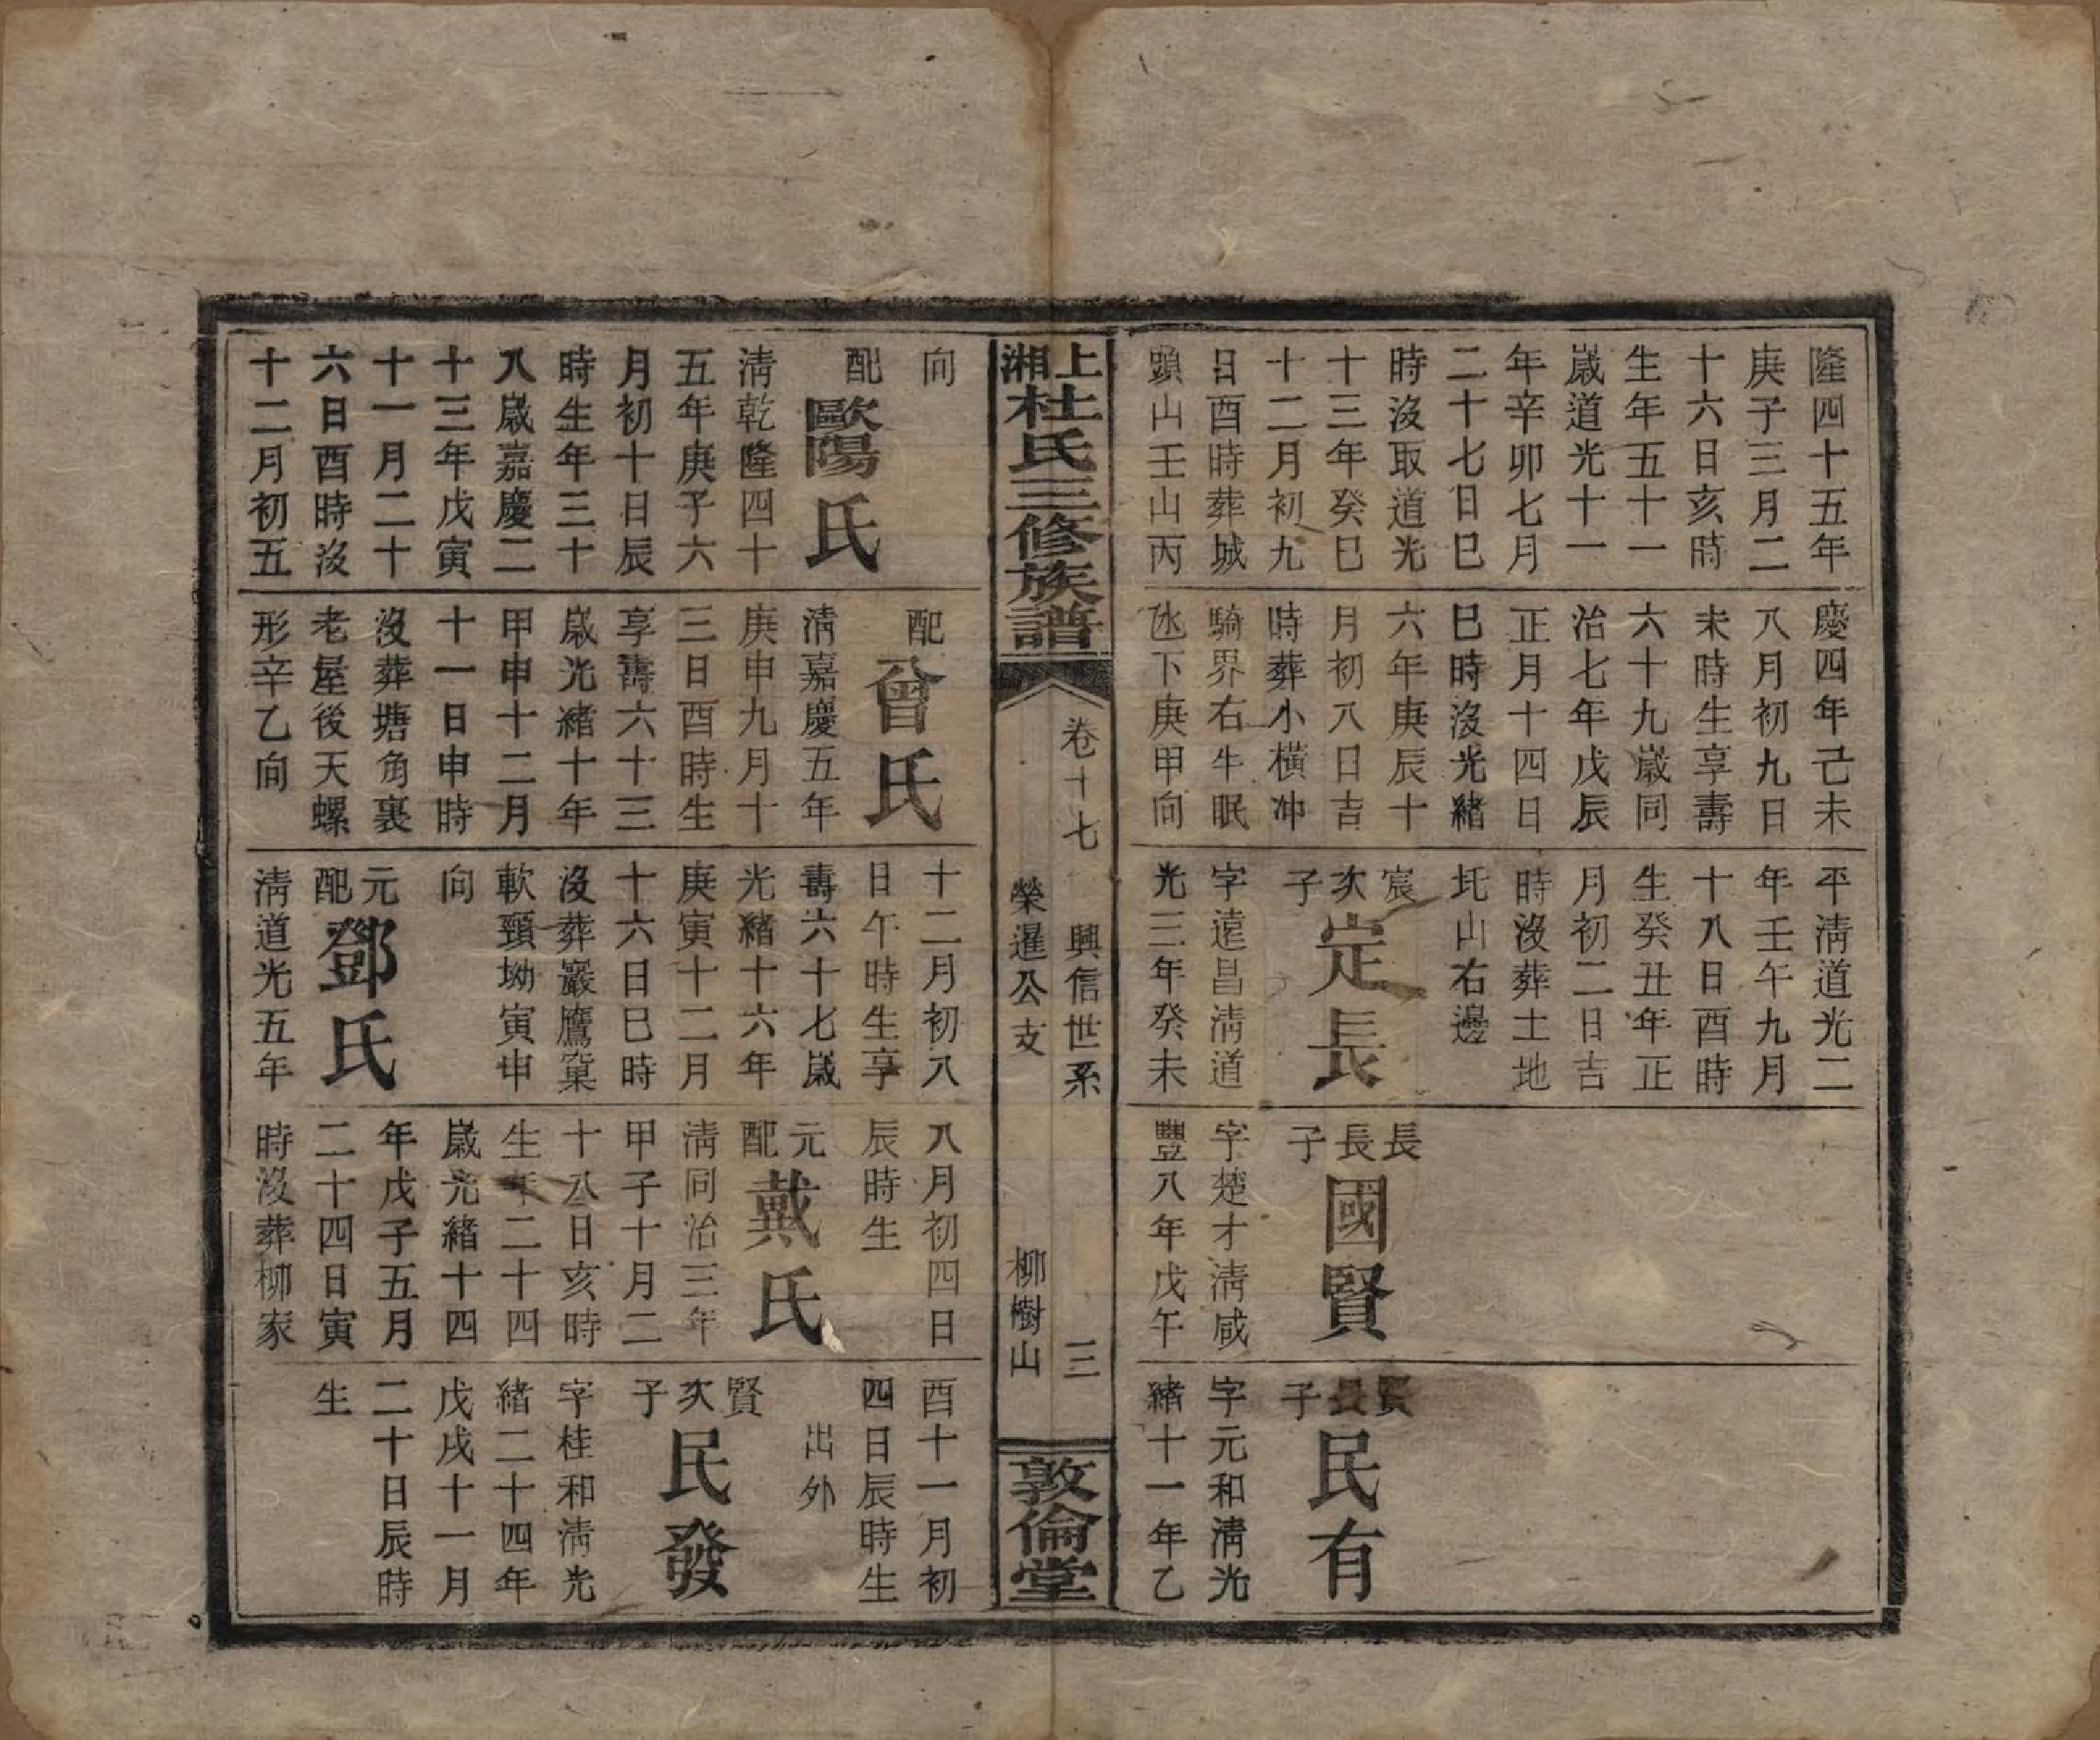 隆四十五年
庚子三月二
十六日亥時
生年五十一
歲道光十一
年辛卯七月
二十七日巳
時沒取道光
十三年癸巳
十二月初九
日酉時葬城
頭山壬山丙
慶四年己未
八月初九日
未時生享壽
六十九歲同
治七年戊辰
正月十四日
巳時沒光緒
六年庚辰十
月初八日吉
時葬小橫冲
騎界右牛眠
凼下庚甲向
平淸道光二
年壬午九月
十八日酉時
生癸丑年正
月初二日吉
時沒葬土地
圫山右邊
宸次子
定長
字遠昌淸道
光三年癸未
長長子
國賢
字楚才淸咸
豐八年戊午
賢長子
民有
字元和淸光
緒十一年乙
上湘杜氏三修族譜
卷十七
興信世系
三
榮暹公支
柳樹山
敦倫堂
向
配
歐陽氏
淸乾隆四十
五年庚子六
月初十日辰
時生年三十
八歲嘉慶二
十三年戊寅
十一月二十
六日酉時沒
十二月初五
配
曾氏
淸嘉慶五年
庚申九月十
三日酉時生
享壽六十三
歲光緒十年
甲申十二月
十一日申時
沒葬塘角裏
老屋後天螺
形辛乙向
十二月初八
日午時生享
壽六十七歲
光緒十六年
庚寅十二月
十六日巳時
沒葬巖鷹窠
軟頸坳寅申
向
元配
鄧氏
淸道光五年
八月初四日
辰時生
元配
戴氏
淸同治三年
甲子十月二
十八日亥時
生年二十四
歲光緒十四
年戊子五月
二十四日寅
時沒葬柳家
酉十一月初
四日辰時生
出外
賢次子
民發
字桂和淸光
緒二十四年
戊戌十一月
二十日辰時
生